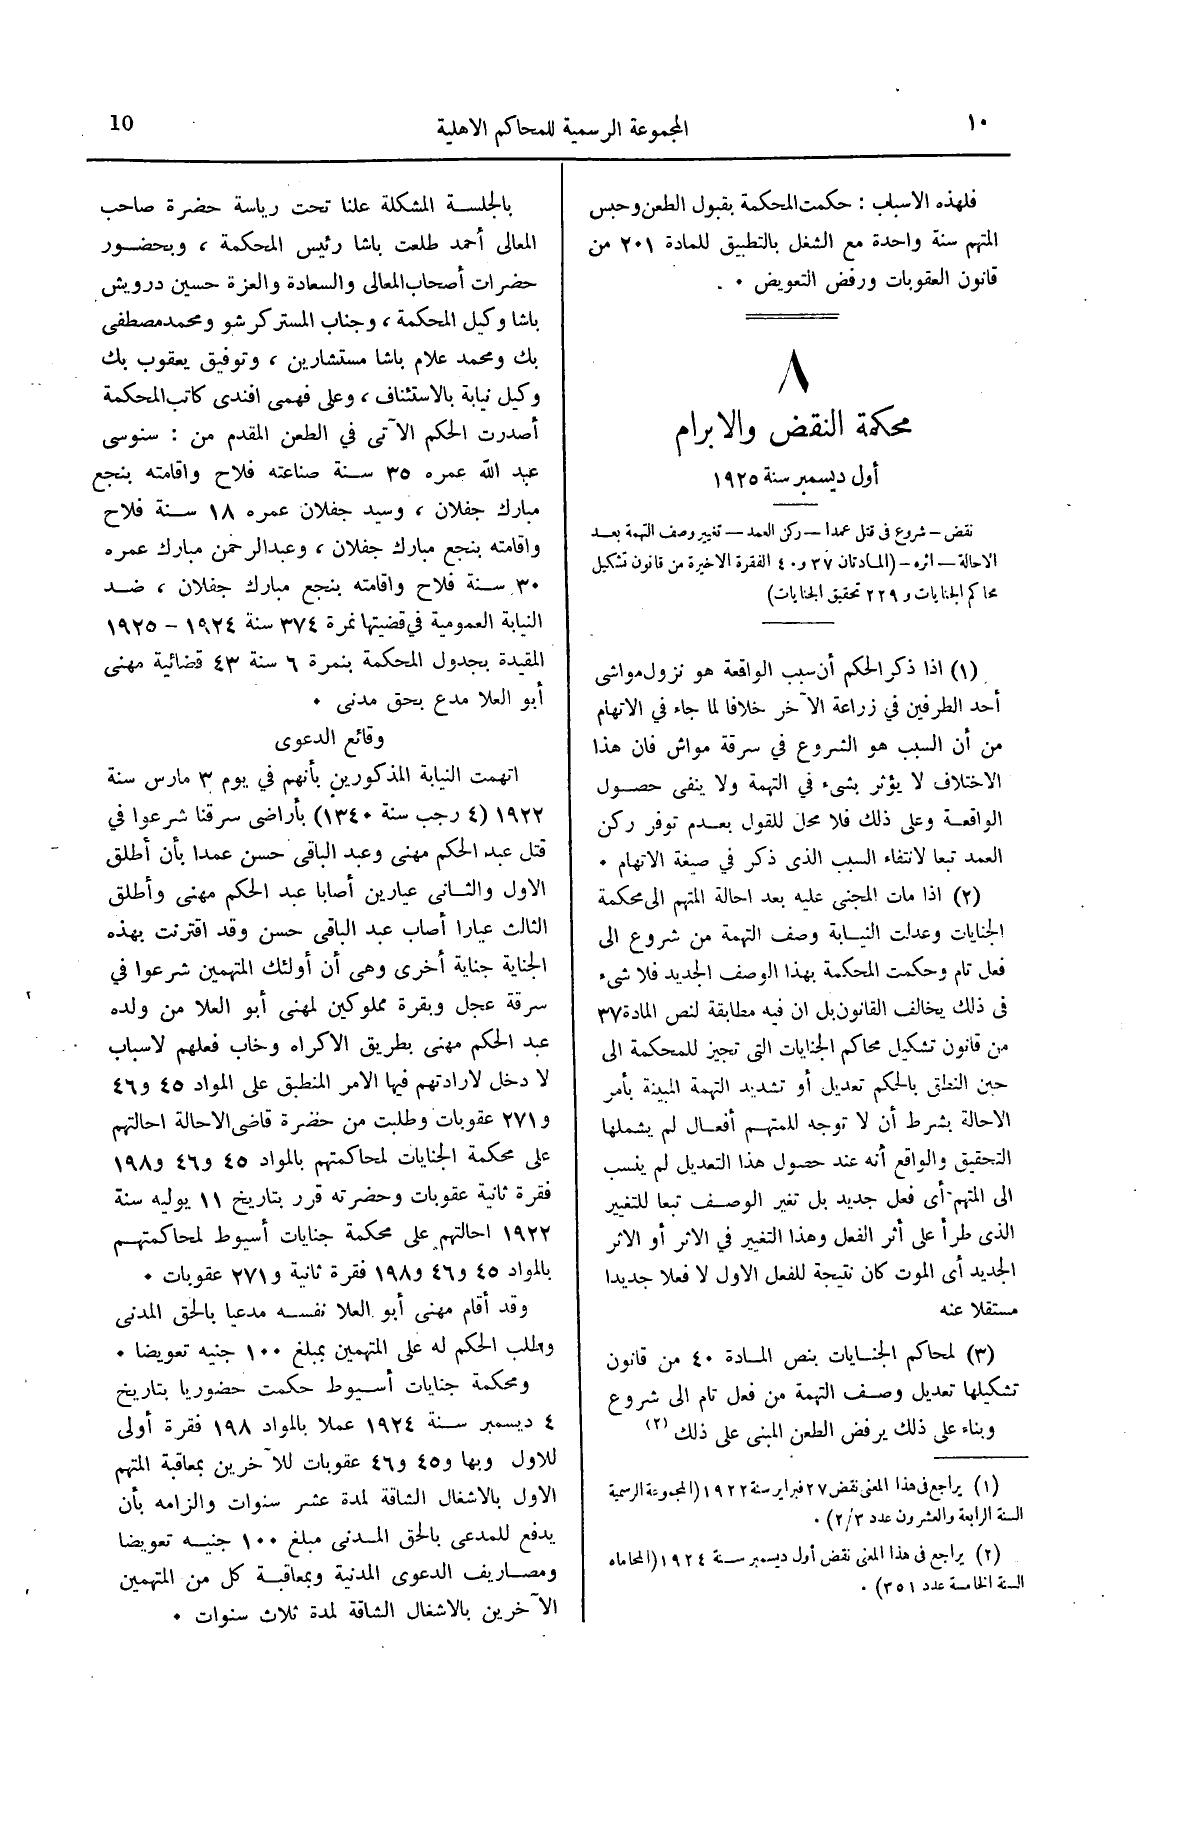 ١٠
المجموعة الرسمية للمحاكم الاهلية
10
فلهذه الاسباب : حكمت المحكمة بقبول الطعن وحبس
المتهم سنة واحدة مع الشغل بالتطبيق للمادة ٢٠١ من
قانون العقوبات ورفض التعويض ٠
٨
محكمة النقض والابرام
أول ديسمبر سنة ١٩٢٥
نقض – شروع فى قتل عمداً – ركن العمد – تغيير وصف التهمة بعد
الاحالة – اثره – (المادتان ٣٧ و ٤٠ الفقرة الاخيرة من قانون تشكيل
محاكم الجنايات و ٢٢٩ تحقيق الجنايات)
(١) اذا ذكر الحكم أن سبب الواقعة هو نزول مواشى
أحد الطرفين في زراعة الآخر خلافا لما جاء في الاتهام
من أن السبب هو الشروع في سرقة مواش فان هذا
الاختلاف لا يؤثر بشىء في التهمة ولا ينفى حصول
الواقعة وعلى ذلك فلا محل للقول بعدم توفر ركن
العمد تبعا لانتفاء السبب الذى ذكر في صيغة الاتهام ٠
(٢) اذا مات المجنى عليه بعد احالة المتهم الى محكمة
الجنايات وعدلت النيابة وصف التهمة من شروع الى
فعل تام وحكمت المحكمة بهذا الوصف الجديد فلا شىء
فى ذلك يخالف القانون بل ان فيه مطابقة لنص المادة ٣٧
من قانون تشكيل محاكم الجنايات التى تجيز للمحكمة الى
حين النطق بالحكم تعديل أو تشديد التهمة المبينة بأمر
الاحالة بشرط أن لا توجه للمتهم أفعال لم يشملها
التحقيق والواقع أنه عند حصول هذا التعديل لم ينسب
الى المتهم أى فعل جديد بل تغير الوصف تبعا للتغيير
الذى طرأ على أثر الفعل وهذا التغيير في الاثر أو الاثر
الجديد أى الموت كان نتيجة للفعل الاول لا فعلا جديدا
مستقلا عنه
(٣) لمحاكم الجنايات بنص المادة ٤٠ من قانون
تشكيلها تعديل وصف التهمة من فعل تام الى شروع
وبناء على ذلك يرفض الطعن المبنى على ذلك (٢)
(١) يراجع فى هذا المعنى نقض ٢٧ فبراير سنة ١٩٢٢ (المجموعة الرسمية
السنة الرابعة والعشرون عدد ٢/٣) ٠
(٢) يراجع فى هذا المعنى نقض أول ديسمبر سنة ١٩٢٤ (المحاماه
السنة الخامسة عدد ٣٥١) ٠
بالجلسة المشكلة علنا تحت رياسة حضرة صاحب
المعالى أحمد طلعت باشا رئيس المحكمة ، وبحضور
حضرات أصحاب المعالى والسعادة والعزة حسين درويش
باشا وكيل المحكمة ، وجناب المستر كرشو ومحمد مصطفى
بك ومحمد علام باشا مستشارين ، وتوفيق يعقوب بك
وكيل نيابة بالاستئناف ، وعلى فهمى افندى كاتب المحكمة
أصدرت الحكم الآتى في الطعن المقدم من : سنوسى
عبد الله عمره ٣٥ سنة صناعته فلاح واقامته بنجع
مبارك جفلان ، وسيد جفلان عمره ١٨ سنة فلاح
واقامته بنجع مبارك جفلان ، وعبد الرحمن مبارك عمره
٣٠ سنة فلاح واقامته بنجع مبارك جفلان ، ضد
النيابة العمومية في قضيتها نمرة ٣٧٤ سنة ١٩٢٤ – ١٩٢٥
المقيدة بجدول المحكمة بنمرة ٦ سنة ٤٣ قضائية مهنى
أبو العلا مدع بحق مدنى ٠
وقائع الدعوى
اتهمت النيابة المذكورين بأنهم في يوم ٣ مارس سنة
١٩٢٢ (٤ رجب سنة ١٣٤٠) بأراضى سرقنا شرعوا في
قتل عبد الحكم مهنى وعبد الباقى حسن عمدا بأن أطلق
الاول والثانى عيارين أصابا عبد الحكم مهنى وأطلق
الثالث عيارا أصاب عبد الباقى حسن وقد اقترنت بهذه
الجناية جناية أخرى وهى أن أولئك المتهمين شرعوا في
سرقة عجل وبقرة مملوكين لمهنى أبو العلا من ولده
عبد الحكم مهنى بطريق الاكراه وخاب فعلهم لاسباب
لا دخل لارادتهم فيها الامر المنطبق على المواد ٤٥ و ٤٦
و ٢٧١ عقوبات وطلبت من حضرة قاضى الاحالة احالتهم
على محكمة الجنايات لمحاكمتهم بالمواد ٤٥ و ٤٦ و ١٩٨
فقرة ثانية عقوبات وحضرته قرر بتاريخ ١١ يوليه سنة
١٩٢٢ احالتهم على محكمة جنايات أسيوط لمحاكمتهم
بالمواد ٤٥ و ٤٦ و ١٩٨ فقرة ثانية و ٢٧١ عقوبات ٠
وقد أقام مهنى أبو العلا نفسه مدعيا بالحق المدنى
وطلب الحكم له على المتهمين بمبلغ ١٠٠ جنيه تعويضا ٠
ومحكمة جنايات أسيوط حكمت حضوريا بتاريخ
٤ ديسمبر سنة ١٩٢٤ عملا بالمواد ١٩٨ فقرة أولى
للاول وبها و ٤٥ و ٤٦ عقوبات للآخرين بمعاقبة المتهم
الاول بالاشغال الشاقة لمدة عشر سنوات والزامه بأن
يدفع للمدعى بالحق المدنى مبلغ ١٠٠ جنيه تعويضا
ومصاريف الدعوى المدنية وبمعاقبة كل من المتهمين
الآخرين بالاشغال الشاقة لمدة ثلاث سنوات ٠